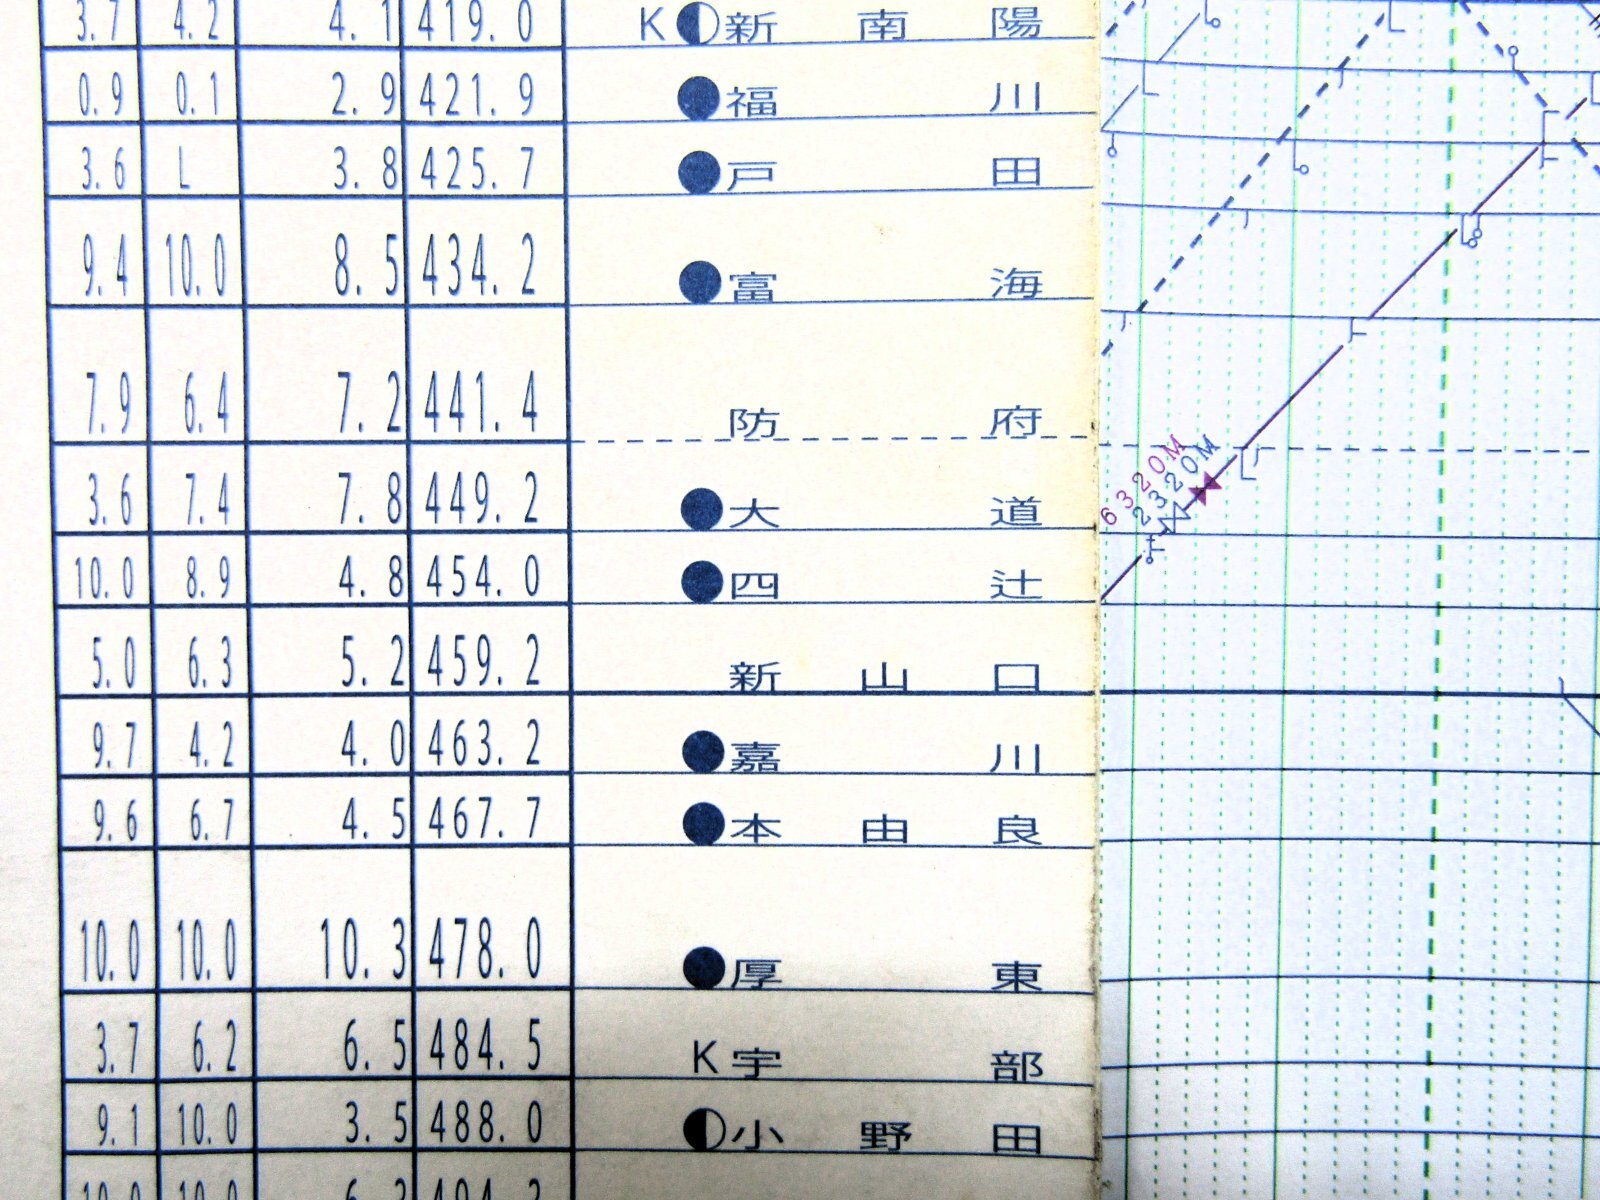 3.7 4.2 4.1 419.0 K 新南陽
0.9 0.1 2.9 421.9 福川
3.6 L 3.8 425.7 戸田
9.4 10.0 8.5 434.2 富海
7.9 6.4 7.2 441.4 防府
6320M
2320M
3.6 7.4 7.8 449.2 大道
10.0 8.9 4.8 454.0 四辻
5.0 6.3 5.2 459.2 新山口
9.7 4.2 4.0 463.2 嘉川
9.6 6.7 4.5 467.7 本由良
10.0 10.0 10.3 478.0 厚東
3.7 6.2 6.5 484.5 K 宇部
9.1 10.0 3.5 488.0 小野田
10.0 10.0 6.3 494.3